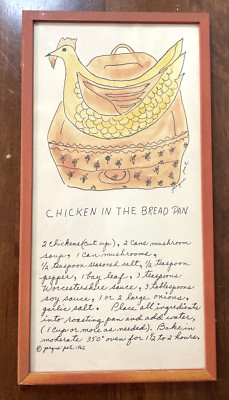 CHICKEN IN THE BREAD PAN
2 chickens (cut up), 2 cans mushroom
soup, 1 can mushrooms,
½ teaspoon seasoned salt, ½ teaspoon
pepper, 1 bay leaf, 3 teaspoons
Worcestershire sauce, 3 tablespoons
soy sauce, 1 or 2 large onions,
garlic salt. Place all ingredients
into roasting pan and add water,
(1 cup or more as needed). Bake in
moderate 350° oven for 1½ to 2 hours.